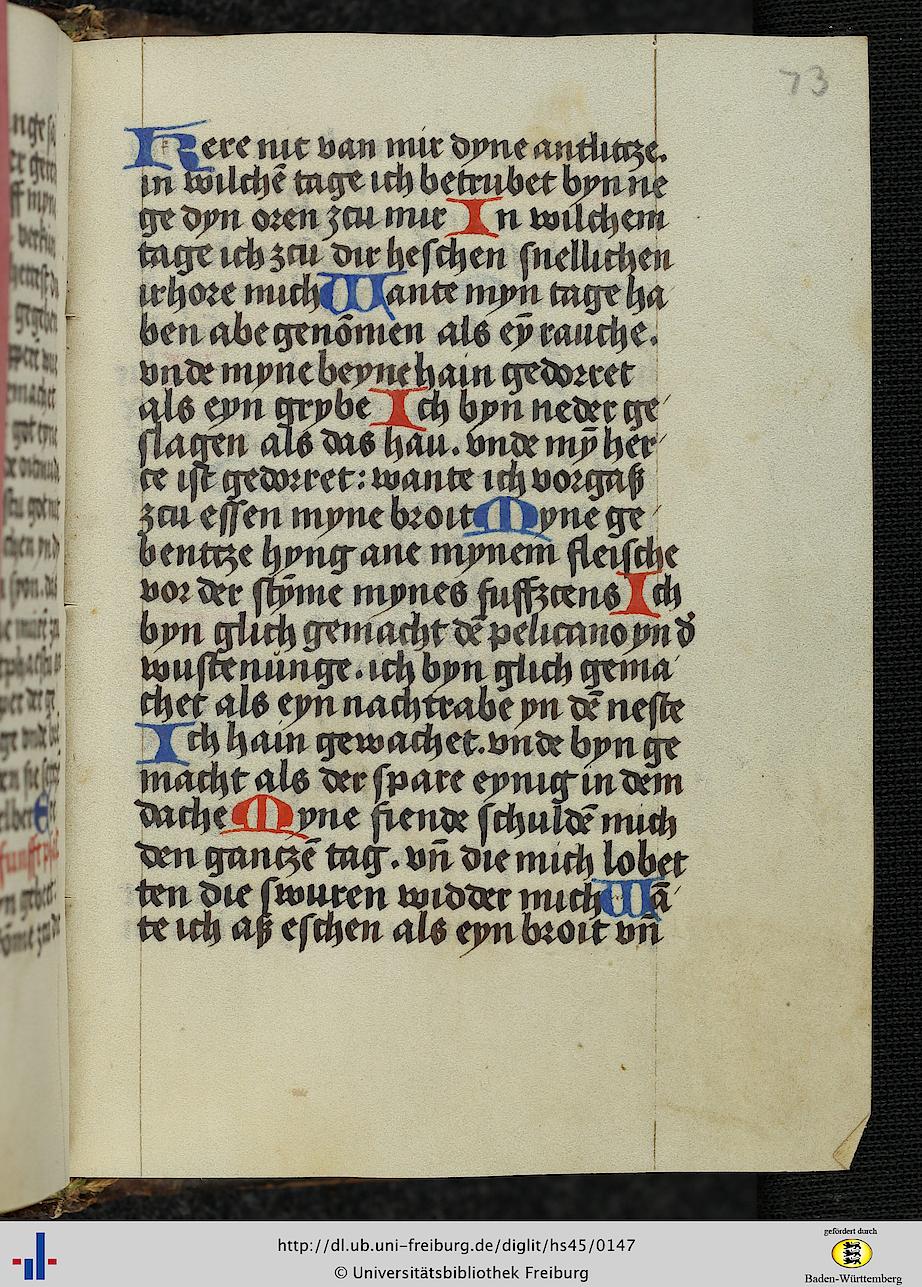 73
Kere nit van mir dyne antlitcze.
in wilchē tage ich betrubet byn ne
ge dyn oren zcu mir In wilchem
tage ich zcu dir heschen snellichen
irhore mich Wante myn tage ha
ben abegenōmen als eȳ rauche.
vnde myne beyne hain gedorret
als eyn grybe Ich byn neder ge
slagen als das hau. vnde mȳ her
ce ist gedorret: wante ich vorgaß
zcu essen myne broit Myne ge
bentcze hyng ane mynem fleische
vor der stȳme mynes suffzcens Ich
byn glich gemacht dē pelicano yn d̄
wustenunge. ich byn glich gema
chet als eyn nachtrabe yn dē neste
Ich hain gewachet. vnde byn ge
macht als der spare eynig in dem
dache Myne fiende schuldē mich
den gantzē tag. vn̄ die mich lobet
ten die swuren widder mich Wā
te ich aß eschen als eyn broit vn̄
http://dl.ub.uni-freiburg.de/diglit/hs45/0147
© Universitätsbibliothek Freiburg
gefördert durch
Baden-Württemberg